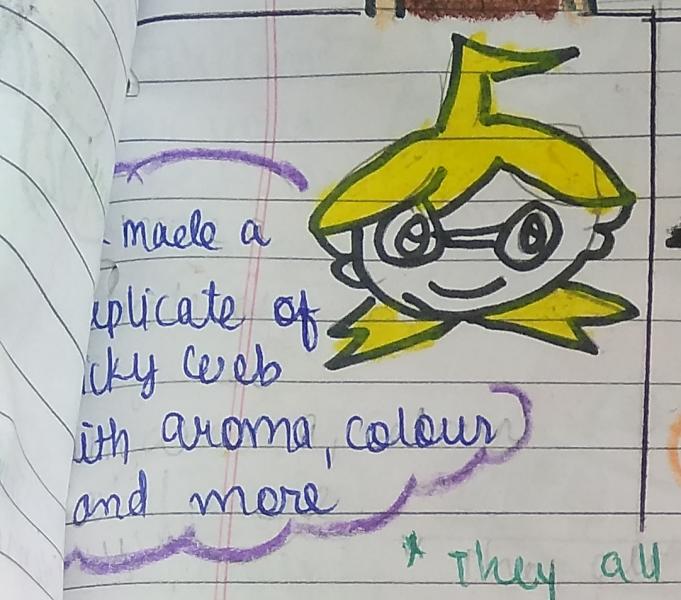 made a
uplicate of
icky web
ith aroma, colour
and more
* They all